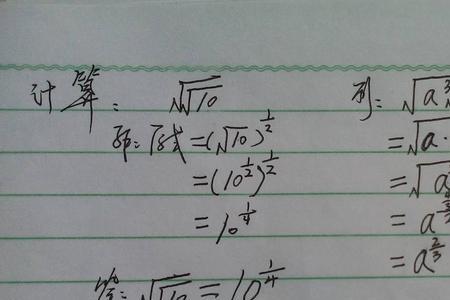 计算: √√10
解: 原式=(√10)^{1/2}
=(10^{1/2})^{1/2}
=10^{1/4}
答: √√10=10^{1/4}
例: √a
=√a·
=√a
=a
=a^{2/3}